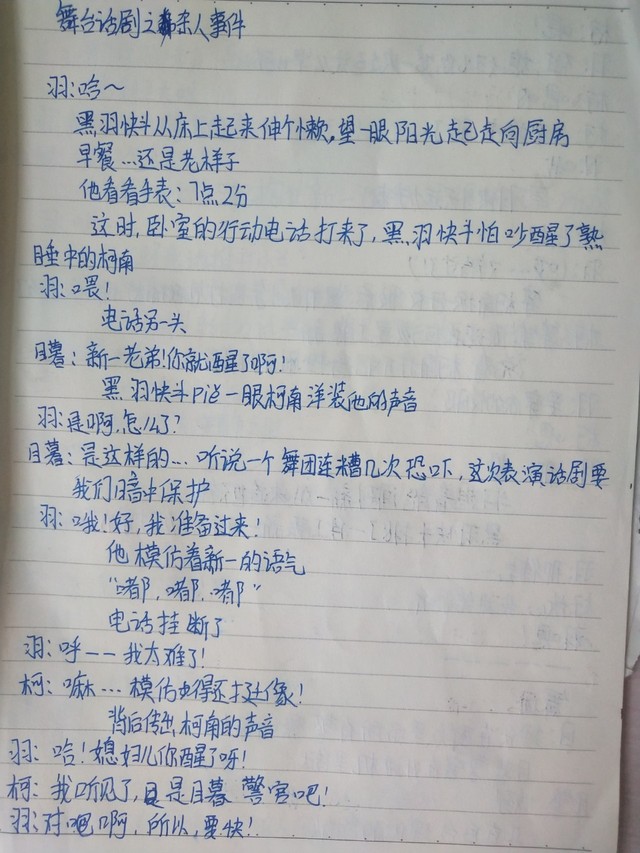 舞台话剧之杀人事件
羽:哈~
黑羽快斗从床上起来伸个懒,望一眼阳光起已走向厨房
早餐...还是老样子
他看看手表:7点2分
这时,卧室的行动电话打来了,黑羽快斗怕吵醒了熟
睡中的柯南
羽:喂!
电话另一头
目暮:新一老弟!你就醒了啊!
黑羽快斗piē一眼柯南洋装他的声音
羽:是啊,怎么了?
目暮:是这样的...听说一个舞团连糟几次恐吓,这次表演话剧要
我们暗中保护
羽:哦!好,我准备过来!
他模仿着新一的语气
"嘟,嘟,嘟"
电话挂断了
羽:呼——我太难了!
柯:嘛...模仿得还挺像!
背后传出柯南的声音
羽:哈!媳妇儿你醒了呀!
柯:我听见了,是目暮警官吧!
羽:对啊,所以,要快!